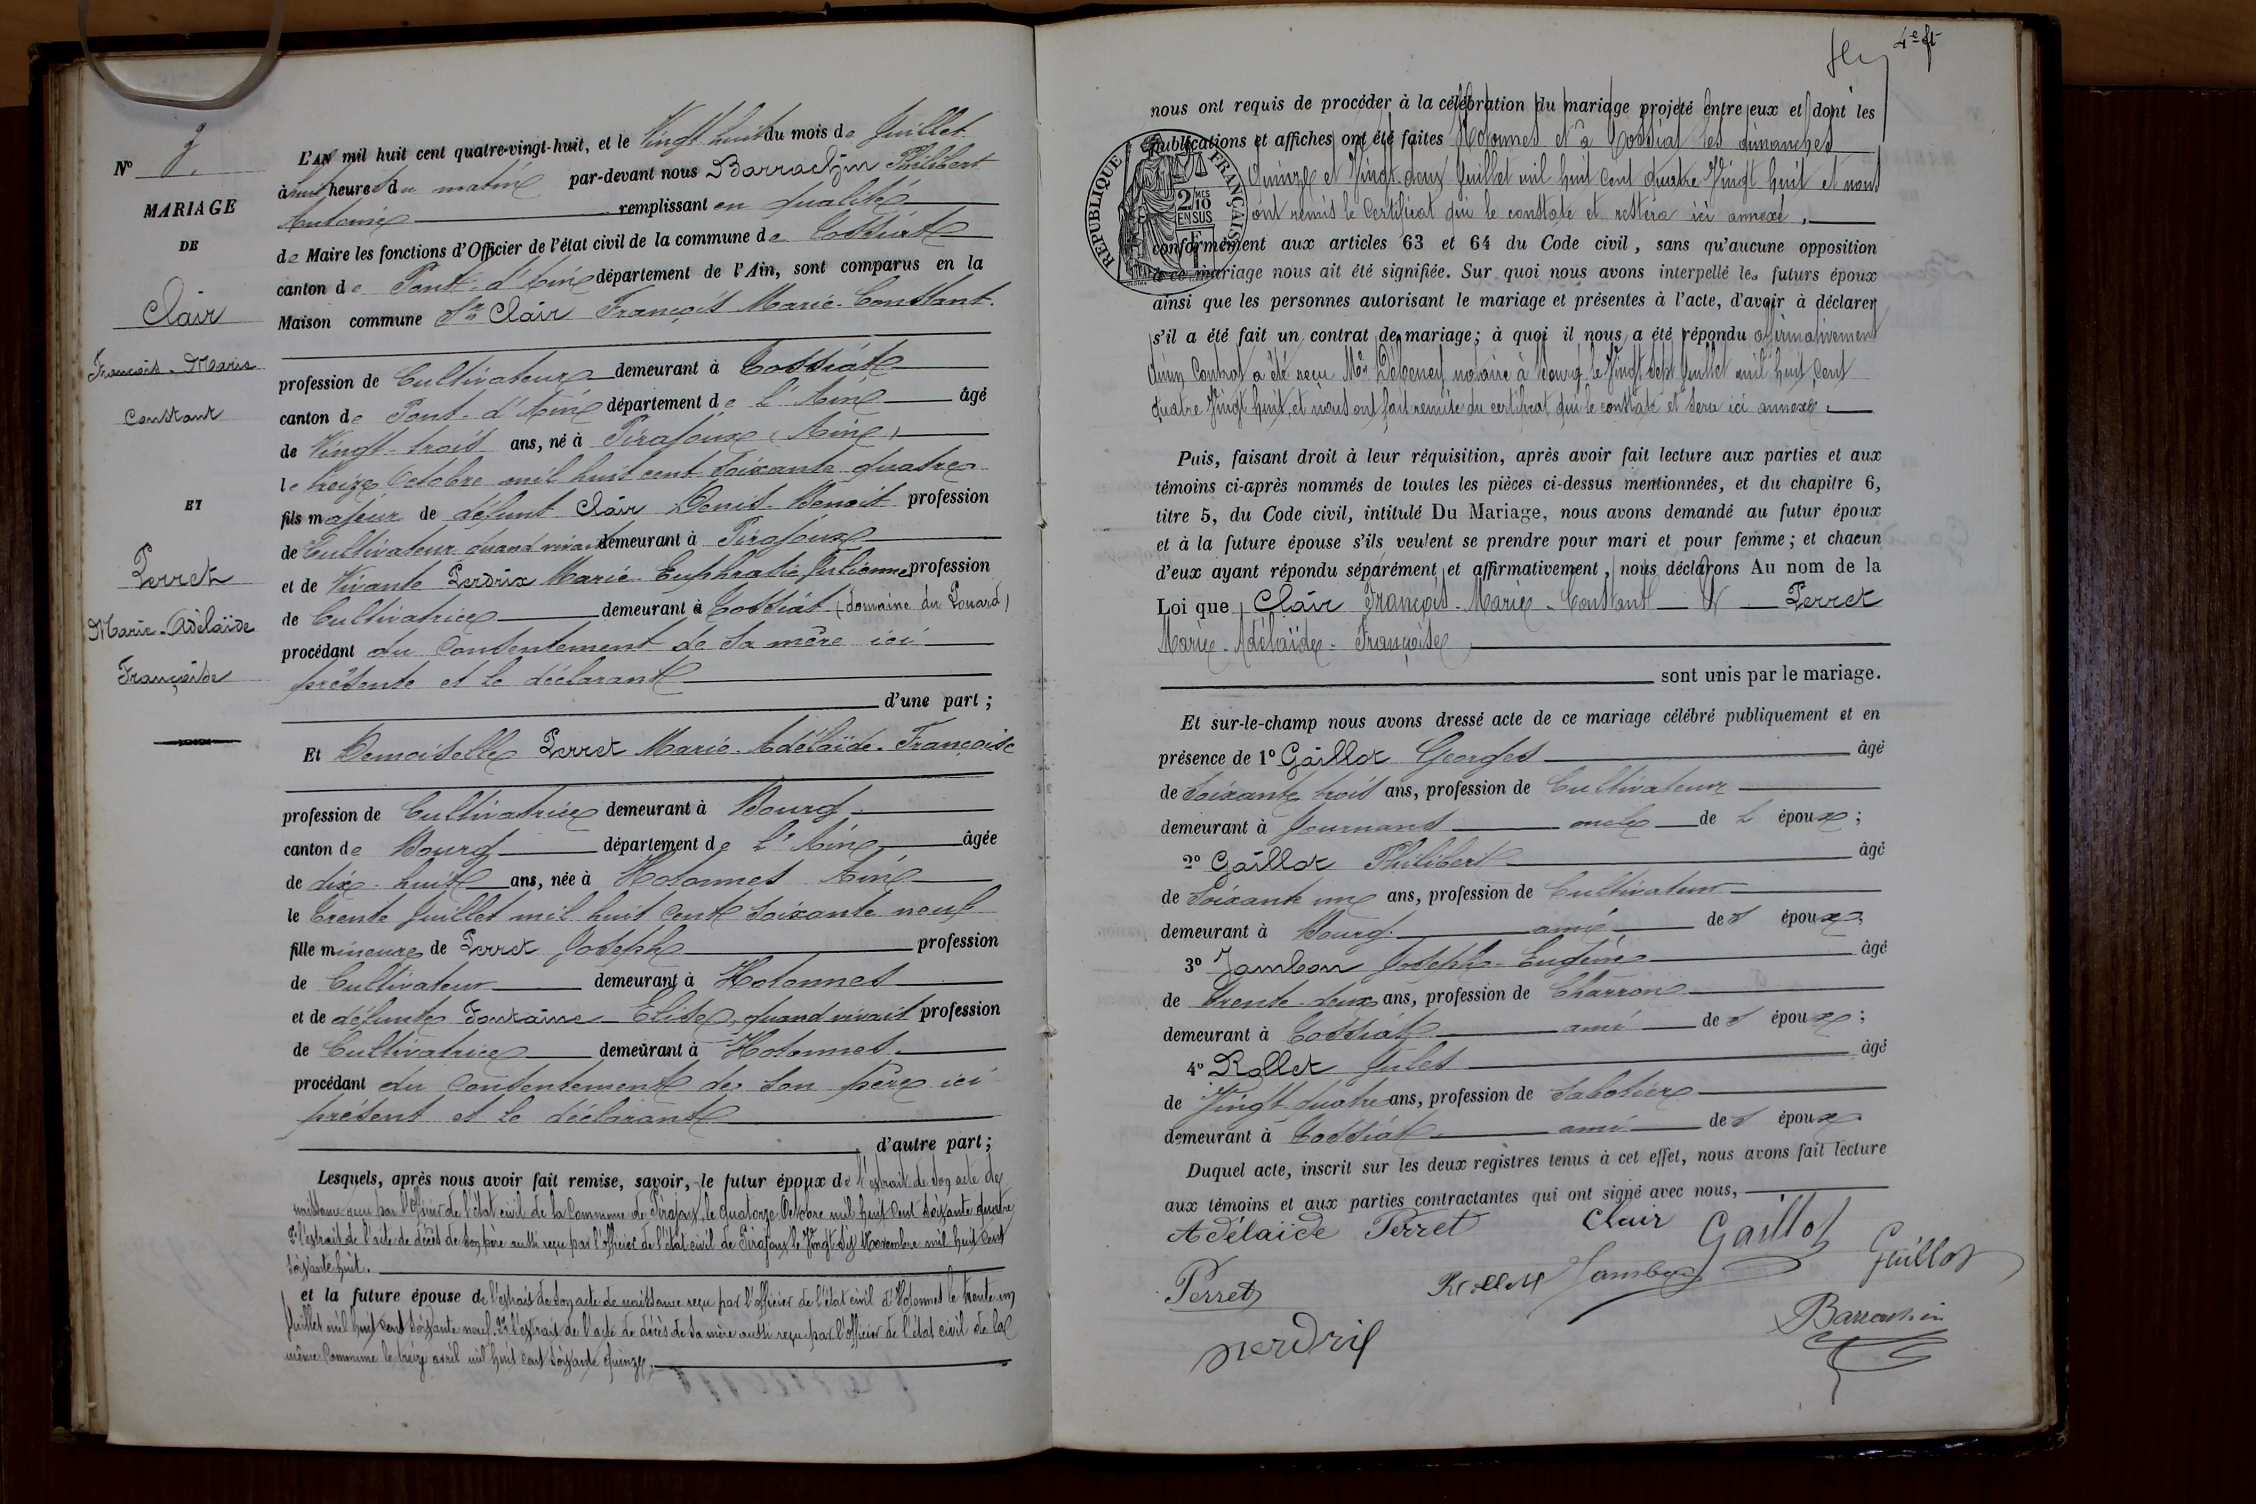 N° 9.
MARIAGE
DE
Clair
François-Marie
Constant
ET
Perret
Marie-Adélaïde
Françoise
L'AN mil huit cent quatre-vingt-huit, et le Vingt huit du mois de Juillet
à huit heures du matin par-devant nous Barrachin Philibert
Antoine remplissant en qualité
de Maire les fonctions d'Officier de l'état civil de la commune de Tossiat
canton de Pont-d'Ain département de l'Ain, sont comparus en la
Maison commune Sr Clair François Marie-Constant.
profession de Cultivateur demeurant à Tossiat
canton de Pont-d'Ain département de l'Ain âgé
de Vingt-trois ans, né à Pirajoux (Ain)
le treize Octobre mil huit cent soixante quatre
fils majeur de défunt Clair Denis-Benoit profession
de Cultivateur quand vivait demeurant à Pirajoux
et de Vivante Perdrix Marie Euphrasie Julienne profession
de Cultivatrice demeurant à Tossiat (domaine du Pouard)
procédant du consentement de sa mère ici
présente et le déclarant
d'une part ;
Et Demoiselle Perret Marie-Adélaïde-Françoise
profession de Cultivatrice demeurant à Bourg
canton de Bourg département de l'Ain âgée
de dix-huit ans, née à Hotonnes Ain
le trente Juillet mil huit cent soixante neuf
fille mineure de Perret Joseph profession
de Cultivateur demeurant à Hotonnes
et de défunte Fontaine Elise, quand vivait profession
de Cultivatrice demeurant à Hotonnes
procédant du consentement de son père ici
présent et le déclarant
d'autre part ;
Lesquels, après nous avoir fait remise, savoir, le futur époux de l'extrait de son acte de
naissance reçu par l'officier de l'état civil de la Commune de Pirajoux le quatorze Octobre mil huit cent soixante quatre
2° l'extrait de l'acte de décès de son père aussi reçu par l'officier de l'état civil de Pirajoux le Vingt six Novembre mil huit cent
soixante huit.
et la future épouse de l'extrait de son acte de naissance reçu par l'officier de l'état civil d'Hotonnes le trente un
Juillet mil huit cent soixante neuf. 2° l'extrait de l'acte de décès de sa mère aussi reçu par l'officier de l'état civil de la
même Commune le treize avril mil huit cent soixante quinze.
4e ft
nous ont requis de procéder à la célébration du mariage projeté entre eux et dont les
publications et affiches ont été faites Hotonnes et à Tossiat les dimanches
Quinze et Vingt-deux Juillet mil huit cent quatre Vingt huit et nous
ont remis le certificat qui le constate et restera ici annexé.
RÉPUBLIQUE FRANÇAISE
2 MES
10
EN SUS
1 F
conformément aux articles 63 et 64 du Code civil, sans qu'aucune opposition
à ce mariage nous ait été signifiée. Sur quoi nous avons interpellé les futurs époux
ainsi que les personnes autorisant le mariage et présentes à l'acte, d'avoir à déclarer
s'il a été fait un contrat de mariage ; à quoi il nous a été répondu affirmativement
qu'un Contrat a été reçu Me Débeney notaire à Bourg le Vingt sept Juillet mil huit cent
quatre Vingt huit, et nous ont fait remise du certificat qui le constate et sera ici annexé.
Puis, faisant droit à leur réquisition, après avoir fait lecture aux parties et aux
témoins ci-après nommés de toutes les pièces ci-dessus mentionnées, et du chapitre 6,
titre 5, du Code civil, intitulé Du Mariage, nous avons demandé au futur époux
et à la future épouse s'ils veulent se prendre pour mari et pour femme ; et chacun
d'eux ayant répondu séparément et affirmativement, nous déclarons Au nom de la
Loi que Clair François-Marie-Constant et Perret
Marie-Adélaïde-Françoise
sont unis par le mariage.
Et sur-le-champ nous avons dressé acte de ce mariage célébré publiquement et en
présence de 1° Gaillot Georges âgé
de soixante trois ans, profession de Cultivateur
demeurant à Journans oncle de l'époux ;
2° Gaillot Philibert âgé
de soixante un ans, profession de Cultivateur
demeurant à Bourg ami des époux ;
3° Jambon Joseph-Eugène âgé
de trente-deux ans, profession de Charron
demeurant à Tossiat ami des époux ;
4° Rollet Jules âgé
de Vingt quatre ans, profession de Sabotier
demeurant à Tossiat ami des époux
Duquel acte, inscrit sur les deux registres tenus à cet effet, nous avons fait lecture
aux témoins et aux parties contractantes qui ont signé avec nous,
Adélaïde Perret Clair Gaillot
Perret Rollet Jambon Guillot
Barrachin
perdrix